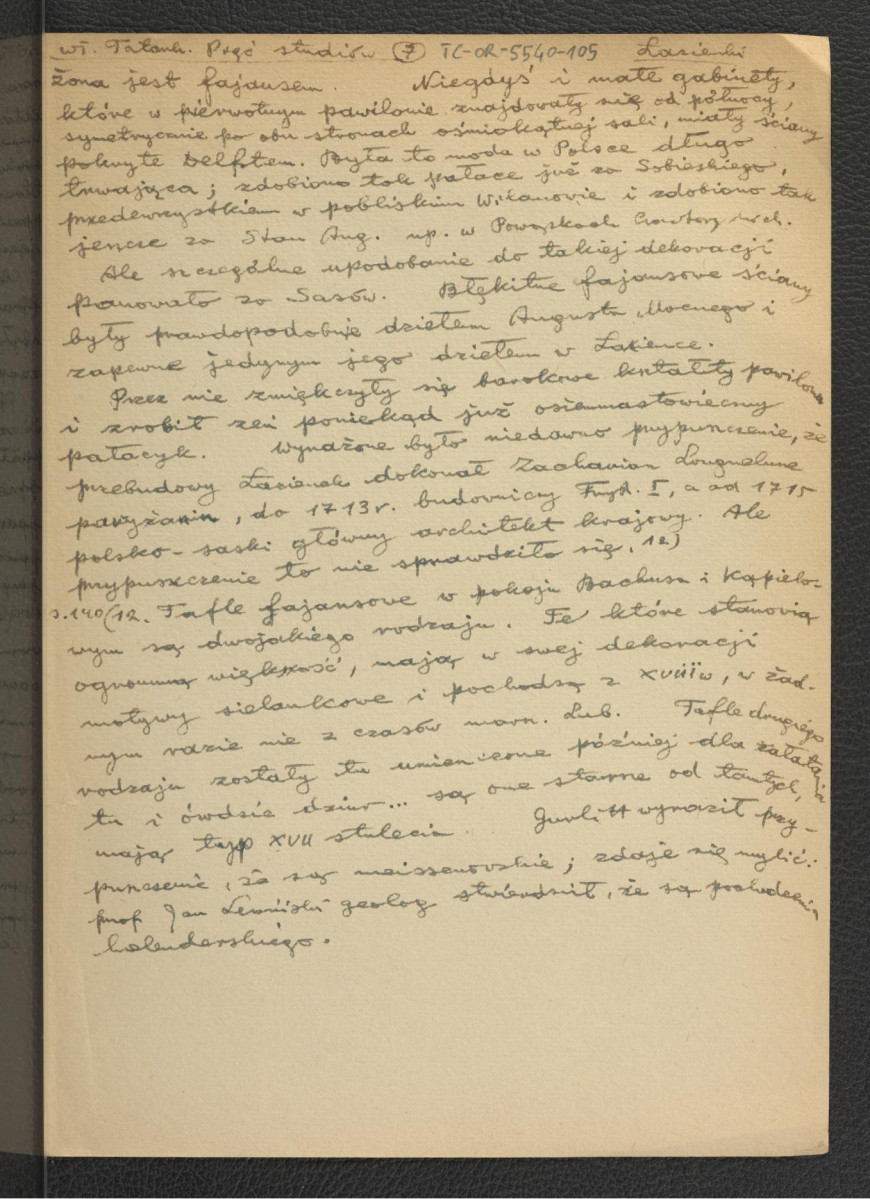 Wł. Tatark. Pięć studiów (7) TC-OR-5540-105 Łazienki
żona jest fajansem. Niegdyś i małe gabinety,
które w pierwotnym pawilonie znajdowały się od północy,
symetrycznie po obu stronach ośmiokątnej sali, miały ściany
pokryte Delftem. Była to moda w Polsce długo
trwająca; zdobiono tak pałace już za Sobieskiego,
przedewszystkiem w pobliskim Wilanowie i zdobiono tak
jeszcze za Stan Aug. np. w Powązkach Czartoryskich.
Ale szczególne upodobanie do takiej dekoracji
panowało za Sasów. Błękitne fajansowe ściany
były prawdopodobnie dziełem Augusta Mocnego i
zapewne jedynym jego dziełem w Łazience.
Przez nie zmiękczyły się barokowe kształty pawilonu
i zrobił zeń poniekąd już osiemnastowieczny
pałacyk. Wyrażone było niedawno przypuszczenie, że
przebudowy Łazienek dokonał Zachariasz Longuelune
paryżanin, do 1713 r. budowniczy Fryd. I, a od 1715
polsko-saski główny architekt krajowy. Ale
przypuszczenie to nie sprawdziło się. 12)
s.140 (12. Tafle fajansowe w pokoju Bachusa i Kąpielo-
wym są dwojakiego rodzaju. Te które stanowią
ogromną większość, mają w swej dekoracji
motywy sielankowe i pochodzą z XVIII w, w żad-
nym razie nie z czasów marsz. Lub. Tafle drugiego
rodzaju zostały tu umieszczone później dla załatania
tu i ówdzie dziur... są one starsze od tamtych,
mają typ XVII stulecia Gurlitt wyraził przy-
puszczenie, że są meissenowskie; zdaje się mylić:
prof Jan Lewiński geolog stwierdził, że są pochodzenia
holenderskiego.